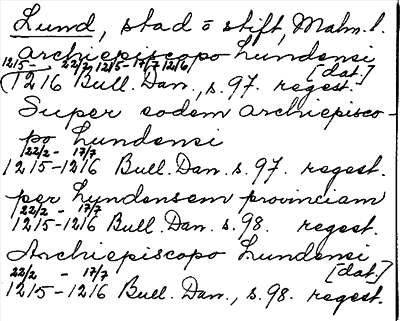 Lund, stad ō stift, Malm. l.
archiepiscopo Lundensi
1215- 22/2 1215-17/7 1216/ [dat.]
1216 Bull. Dan., s. 97. regest.
Super eodem archiepisco-
po Lundensi
22/2 - 17/7
1215-1216 Bull. Dan. s. 97. regest.
per Lundensem provinciam
22/2 - 17/7
1215-1216 Bull. Dan. s. 98. regest.
Archiepiscopo Lundensi
22/2 - 17/7 [dat.]
1215-1216 Bull. Dan., s. 98. regest.